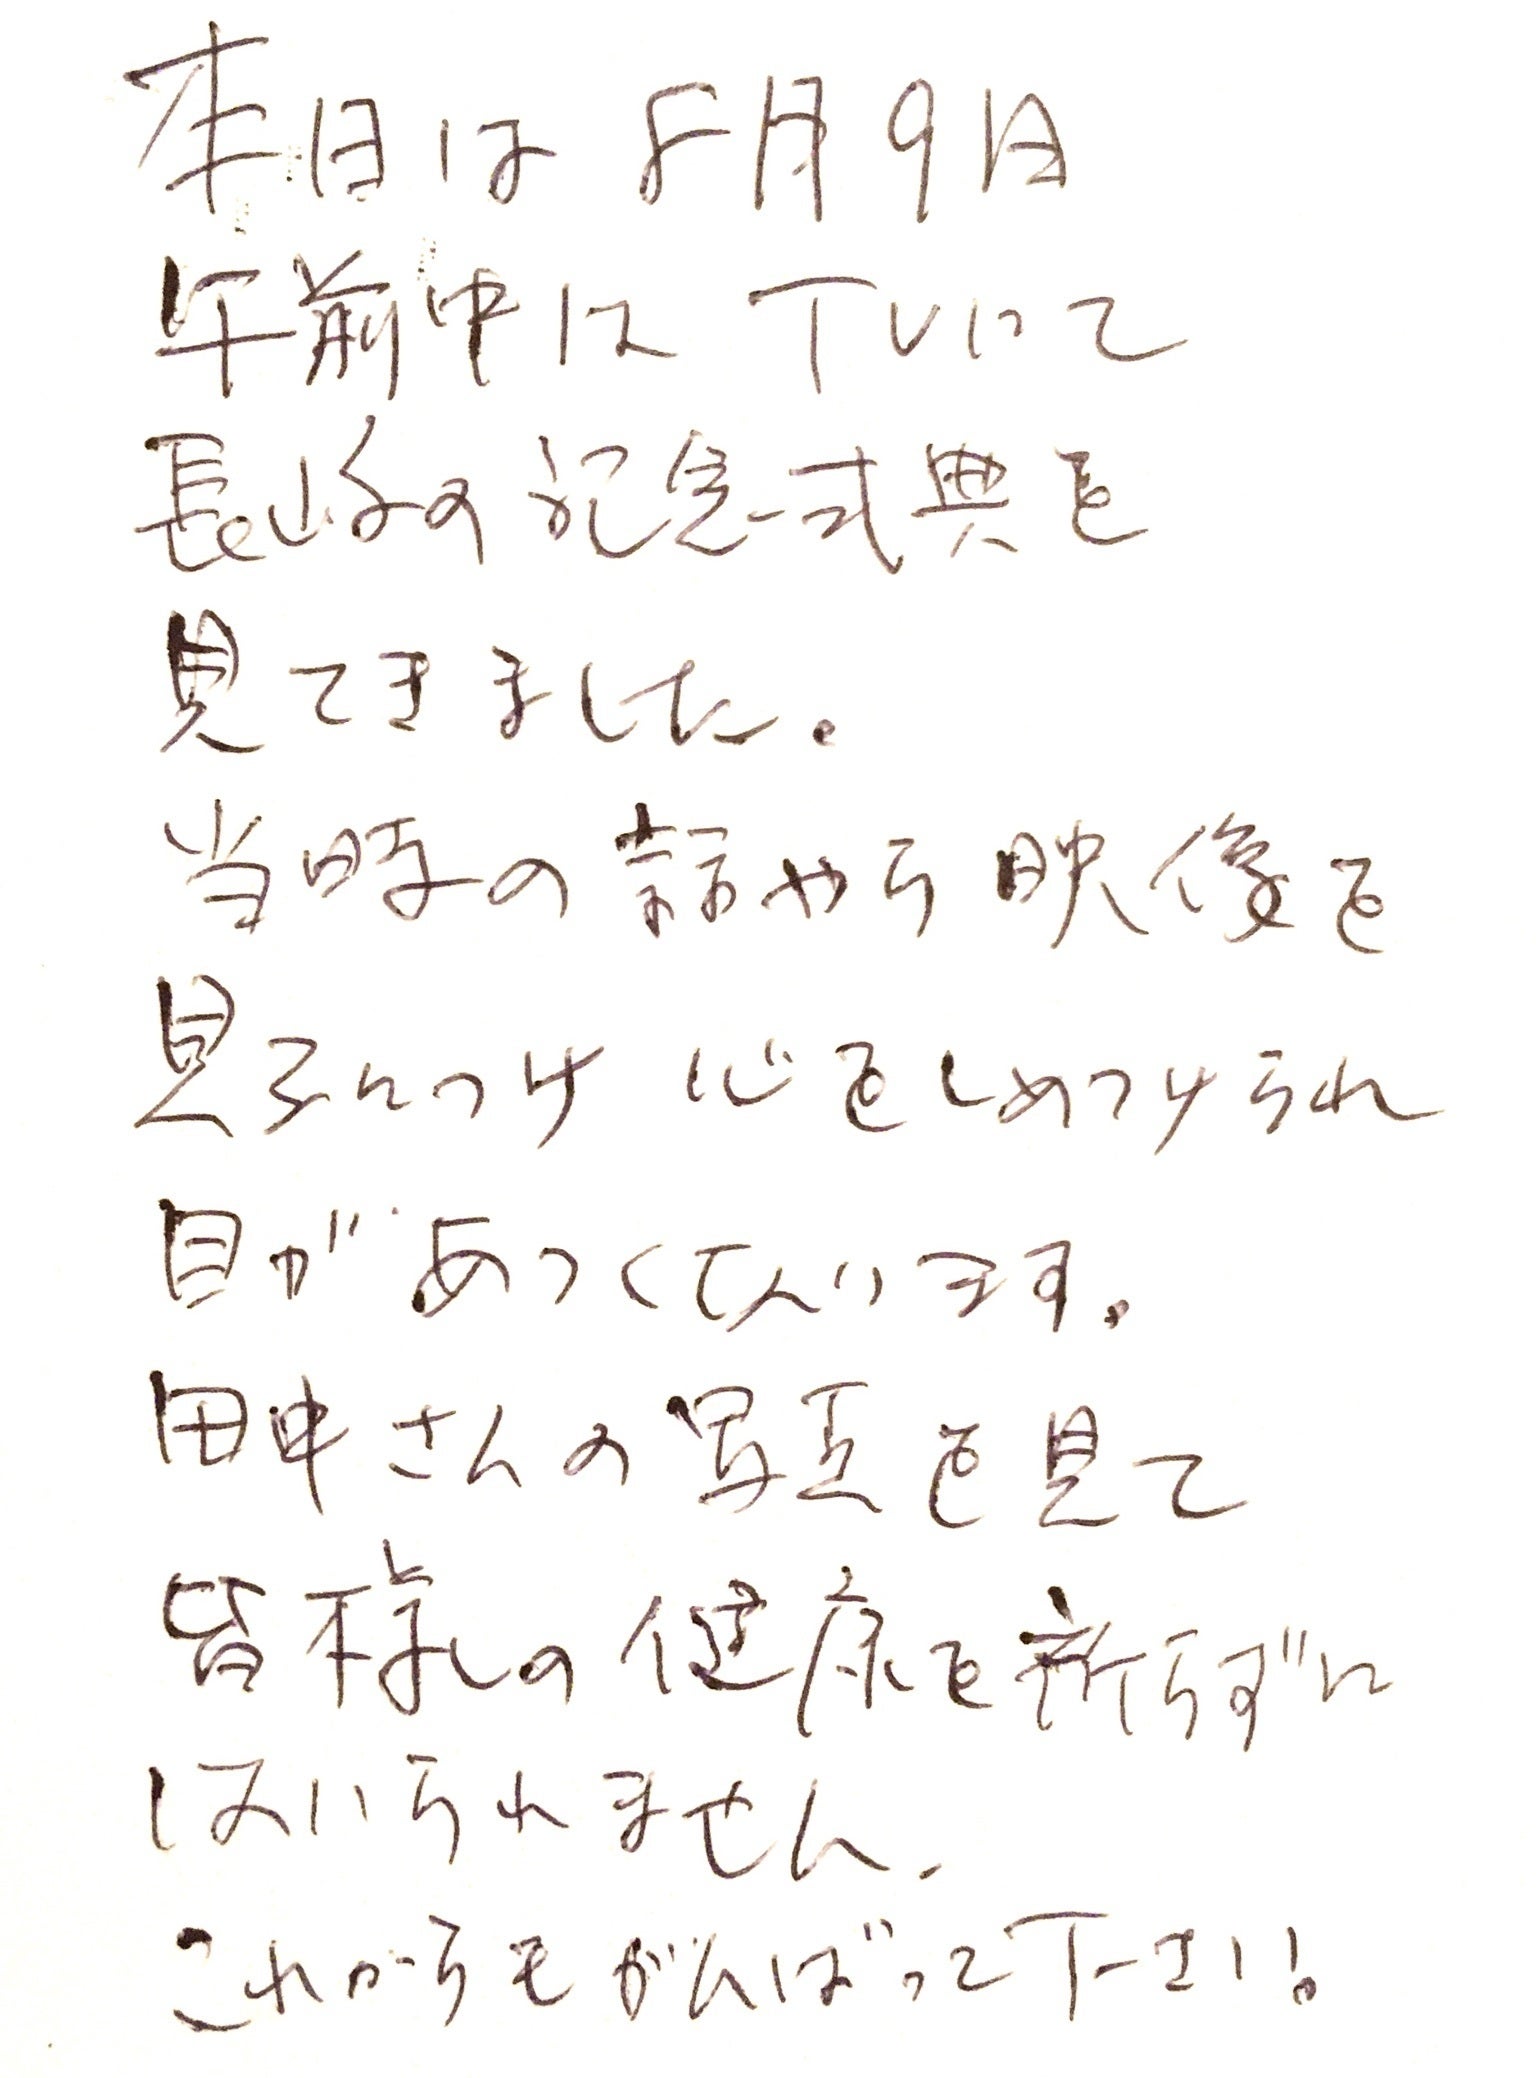 本日は 8月9日
午前中は TVにて
長崎の記念式典を
見てきました。
当時の話やら映像を
見るにつけ 心をしめつけられ
目があつくてんいます。
田中さんの写真を見て
皆様の健康を祈らずに
はいられません。
これからもがんばって下さい!